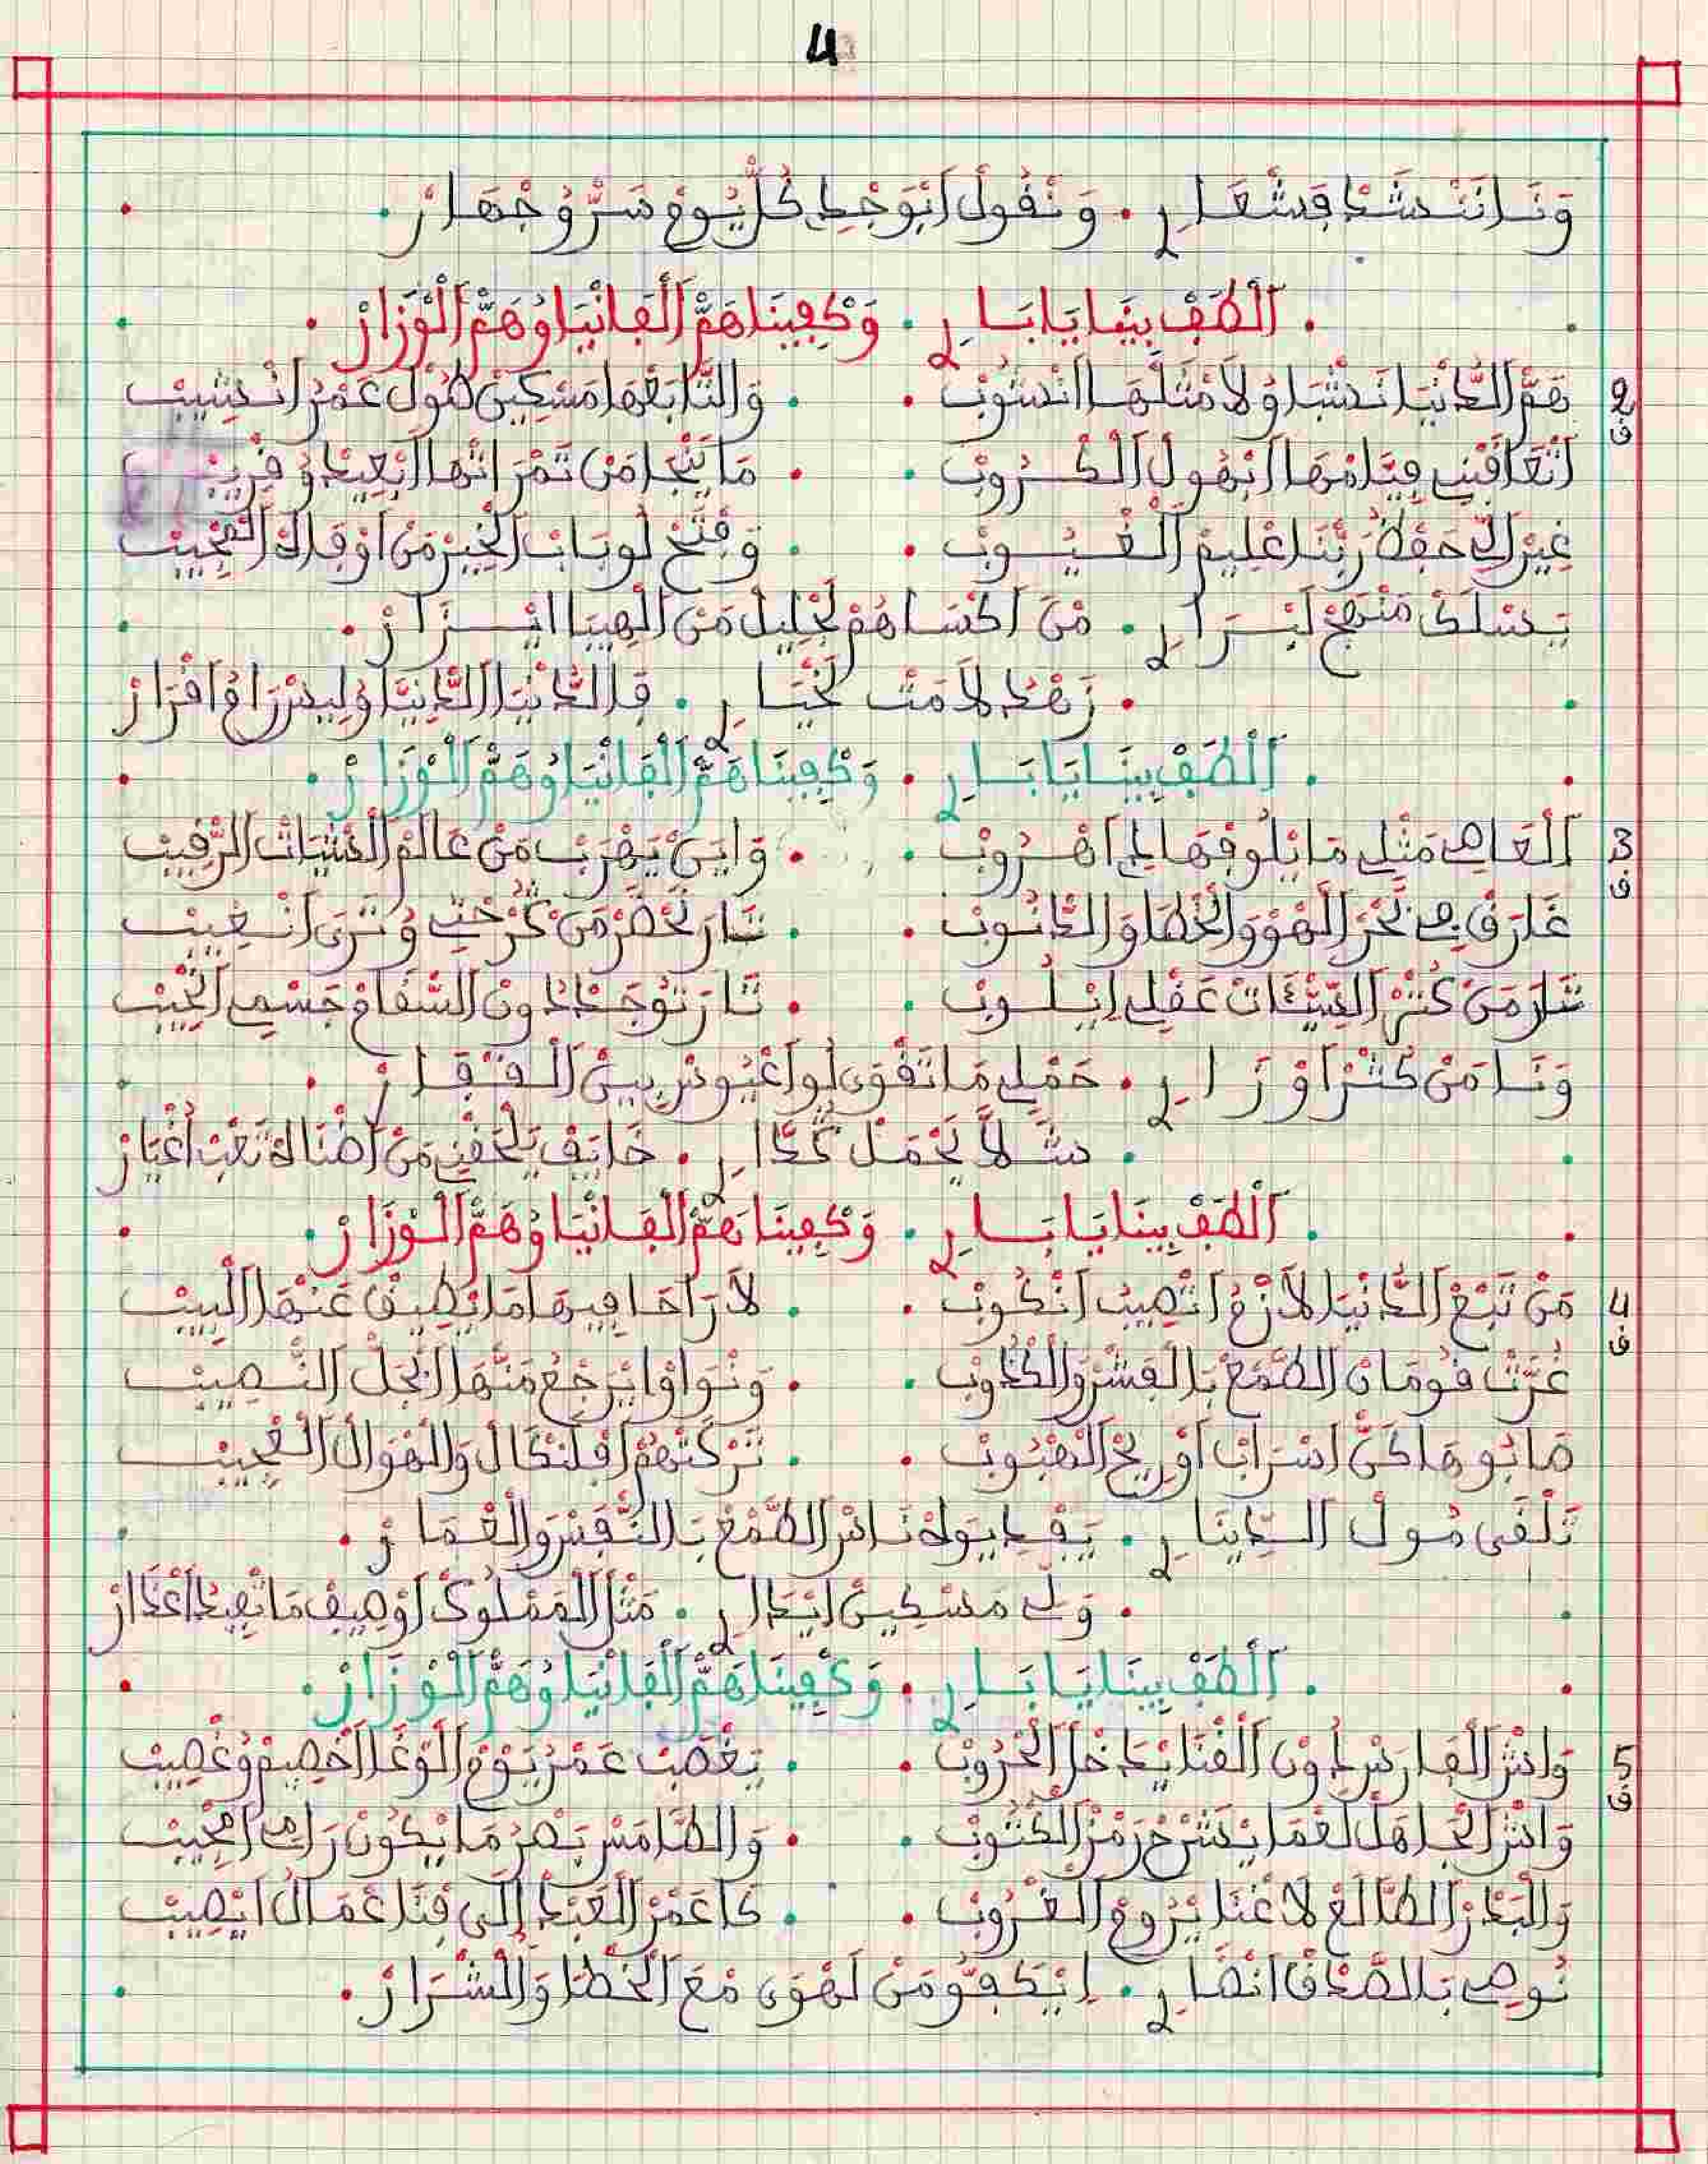 4
وَنَا نَنْشَدْ فَشْعَارِ . وَنْقُولْ أَبْوَجْدِ كُلّْ يُومْ سَرّْ وُجْهَارْ .
. اَلْطَفْ بِينَا يَا بَارِ . وَكْفِينَا هَمّْ اَلْفَانْيَا وُهَمّْ اَلْوْزَارْ .
2 هَمّْ اَلدَّنْيَا نَشْبَا وُلاَ مْثَلْهَا اَنْشُوبْ . وَالتَّابَعْهَا مَسْكِينْ طُولْ عَمْرُ اَنْشِيبْ
ف اَتْعَاقَبْنِي فِيَّامْهَا اَبْهُولْ اَلْكْرُوبْ . مَا يَنْجَا مَنْ تَمْرَاتْهَا اَبْعِيدْ وُقْرِيبْ
غِيرْ اَلِّ حَفْظُ رَبّْنَا عْلِيمْ اَلْغْيُوبْ . وَفْتَحْ لُو بَابْ اَلْخِيرْ مَنْ اَوْقَاتْ
يَسْلَكْ مَنْهَجْ لَبْرَارِ . مْنْ اَكْسَاهُمْ لَجْلِيلْ مَنْ اَلْهِيبَا
. زَهْدْ لاَمْتْ لَخْيَارِ . فَالدَّنْيَا اَلدَّنِيَّا وُلِيسْ رَامْ اَقْرَارْ
. اَلْطَفْ بِينَا يَا بَارِ . وَكْفِينَا هَمّْ اَلْفَانْيَا وُهَمّْ اَلْوْزَارْ .
3 اَلْعَاصِي مَثْلِي مَا يْلُوقْهَا لِي اَهْرُوبْ . وَايْنْ يَهْرَبْ مَنْ عَالَمْ اَلْخْبَاتْ اَلرّْقِيبْ
ف غَارَقْ فِي بْحَرْ اَلْهَوْ وَالْخْطَا وَالدّْنُوبْ . تَارَ نَحْضَرْ مَنْ كَرْحْتِي وُتَرَى اَنْغِيبْ
تَارَ مَنْ كَثْرْ اَلسِّيّْئَاتْ عَقْلِي اِيْلُوبْ . تَارَ نُوجَدْ دُونْ اَلسّْقَامْ جَسْمِي اَنْحِيبْ
وَنَا مَنْ كَثْرْ اَوْزَارِ . حَمْلِي مَا نَقْوَى لُو اَعْبُوسْ بِينْ اَلْفُقَارْ .
. شَلاَّ يَحْمَلْ كَدَّارِ . خَايَفْ يَلْحَقْنِي مَنْ اَضْنَاهْ تَعْبْ اَعْيَارْ
. اَلْطَفْ بِينَا يَا بَارِ . وَكْفِينَا هَمّْ اَلْفَانْيَا وُهَمّْ اَلْوْزَارْ .
4 مَنْ تَبْعْ اَلدَّنْيَا لاَزْمْ اَتْصِيبْ اَنْكُوبْ . لاَ رَاحَا فِيهَا مَا يْطِيقْ عَنْهَا اَلْبِيبْ
ف غَرَّتْ قُومَانْ اَلطّْمَعْ بَالْفِشْرْ وَالْكْدُوبْ . وَنْوَاوْا يَرْجَعْ مَنّْهَا اَبْجَلْ اَلنّْصِيبْ
صَابُوهَا كَنّْ اَسْرَابْ اَوْ رِيحْ اَلْهْبُوبْ . تَرْكَتْهُمْ اَفْلَنْكَالْ وَالْهْوَالْ اَلْعْجِيبْ
تَلْقَى مُولْ اَلدِّينَارِ . يَفْدِيوَهْ نَاسْ اَلطّْمَعْ بَالنّْفِسْ وَالْعْمَارْ .
. وَلِّ مَسْكِينْ اَيْدَارِ . مَثْلْ اَلْمَمْلُوكْ اَوْصِيفْ مَا تْفِيدْ اَعْدَارْ
. اَلْطَفْ بِينَا يَا بَارِ . وَكْفِينَا هَمّْ اَلْفَانْيَا وُهَمّْ اَلْوْزَارْ .
5 وَاشْ اَلْفَارَسْ دُونْ اَلْقْتَا يْدَخَلْ اَلْحْرُوبْ . يَغْصَبْ عَمْرُ يُومْ اَلْوْغَا اَخْصِيمْ وُغْصِيبْ
ف وَاشْ اَلْجَاهَلْ لَعْمَا يْشَرَّحْ رَمْزْ اَلْكْتُوبْ . وَالطَّامَسْ بَصْرُ مَا يْكُونْ رَامِي اَمْجِيبْ
وَالْبْدَرْ اَلطَّالَعْ لاَ غْنَا يْرُومْ اَلْغْرُوبْ . كَا عَمْرْ اَلْعَبْدْ إِلَى فْنَا عْمَالُ اَيْصِيبْ
نُوصِي بَالصَّدْقْ اَنْصَارِ . اِيْكَفُّو مَنْ لَهْوَى مْعَ اَلْخْطَا وَالْشْرَارْ .